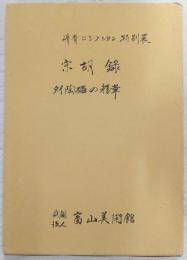 所蔵コレクション特別展
宗胡録
タイ陶磁の精華
財団法人 富山美術館